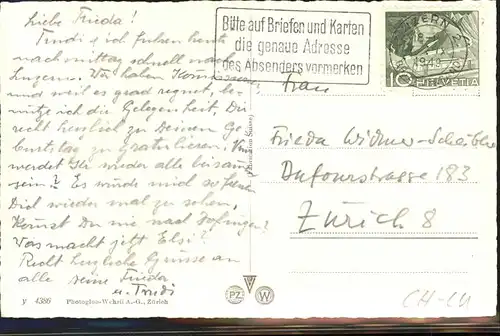 Liebe Frieda!
Trudi & ich fuhren heute
nachmittag schnell nach
Luzern. Wir haben
und weil es grad regnet, be-
nütze ich die Gelegenheit, Dir
recht herzlich zu Deinem Ge-
burtstag zu gratulieren. Nun
werdet Ihr wieder alle beisam
sein? Es würde mich so freuen
Dich wieder mal zu sehen,
Kommst Du nie nach Zofingen?
Was macht jetzt Elsi?
Recht herzliche Grüsse an
alle Deine Frieda
u. Trudi
y 4386 Photoglob-Wehrli A.-G., Zürich
Bitte auf Briefen und Karten
die genaue Adresse
des Absenders vermerken
LUZERN 2
1949
10 HELVETIA
Frau
Frieda Widmer-Schäublin
Dufourstrasse 183
Zürich 8
PZ W
CH-LU